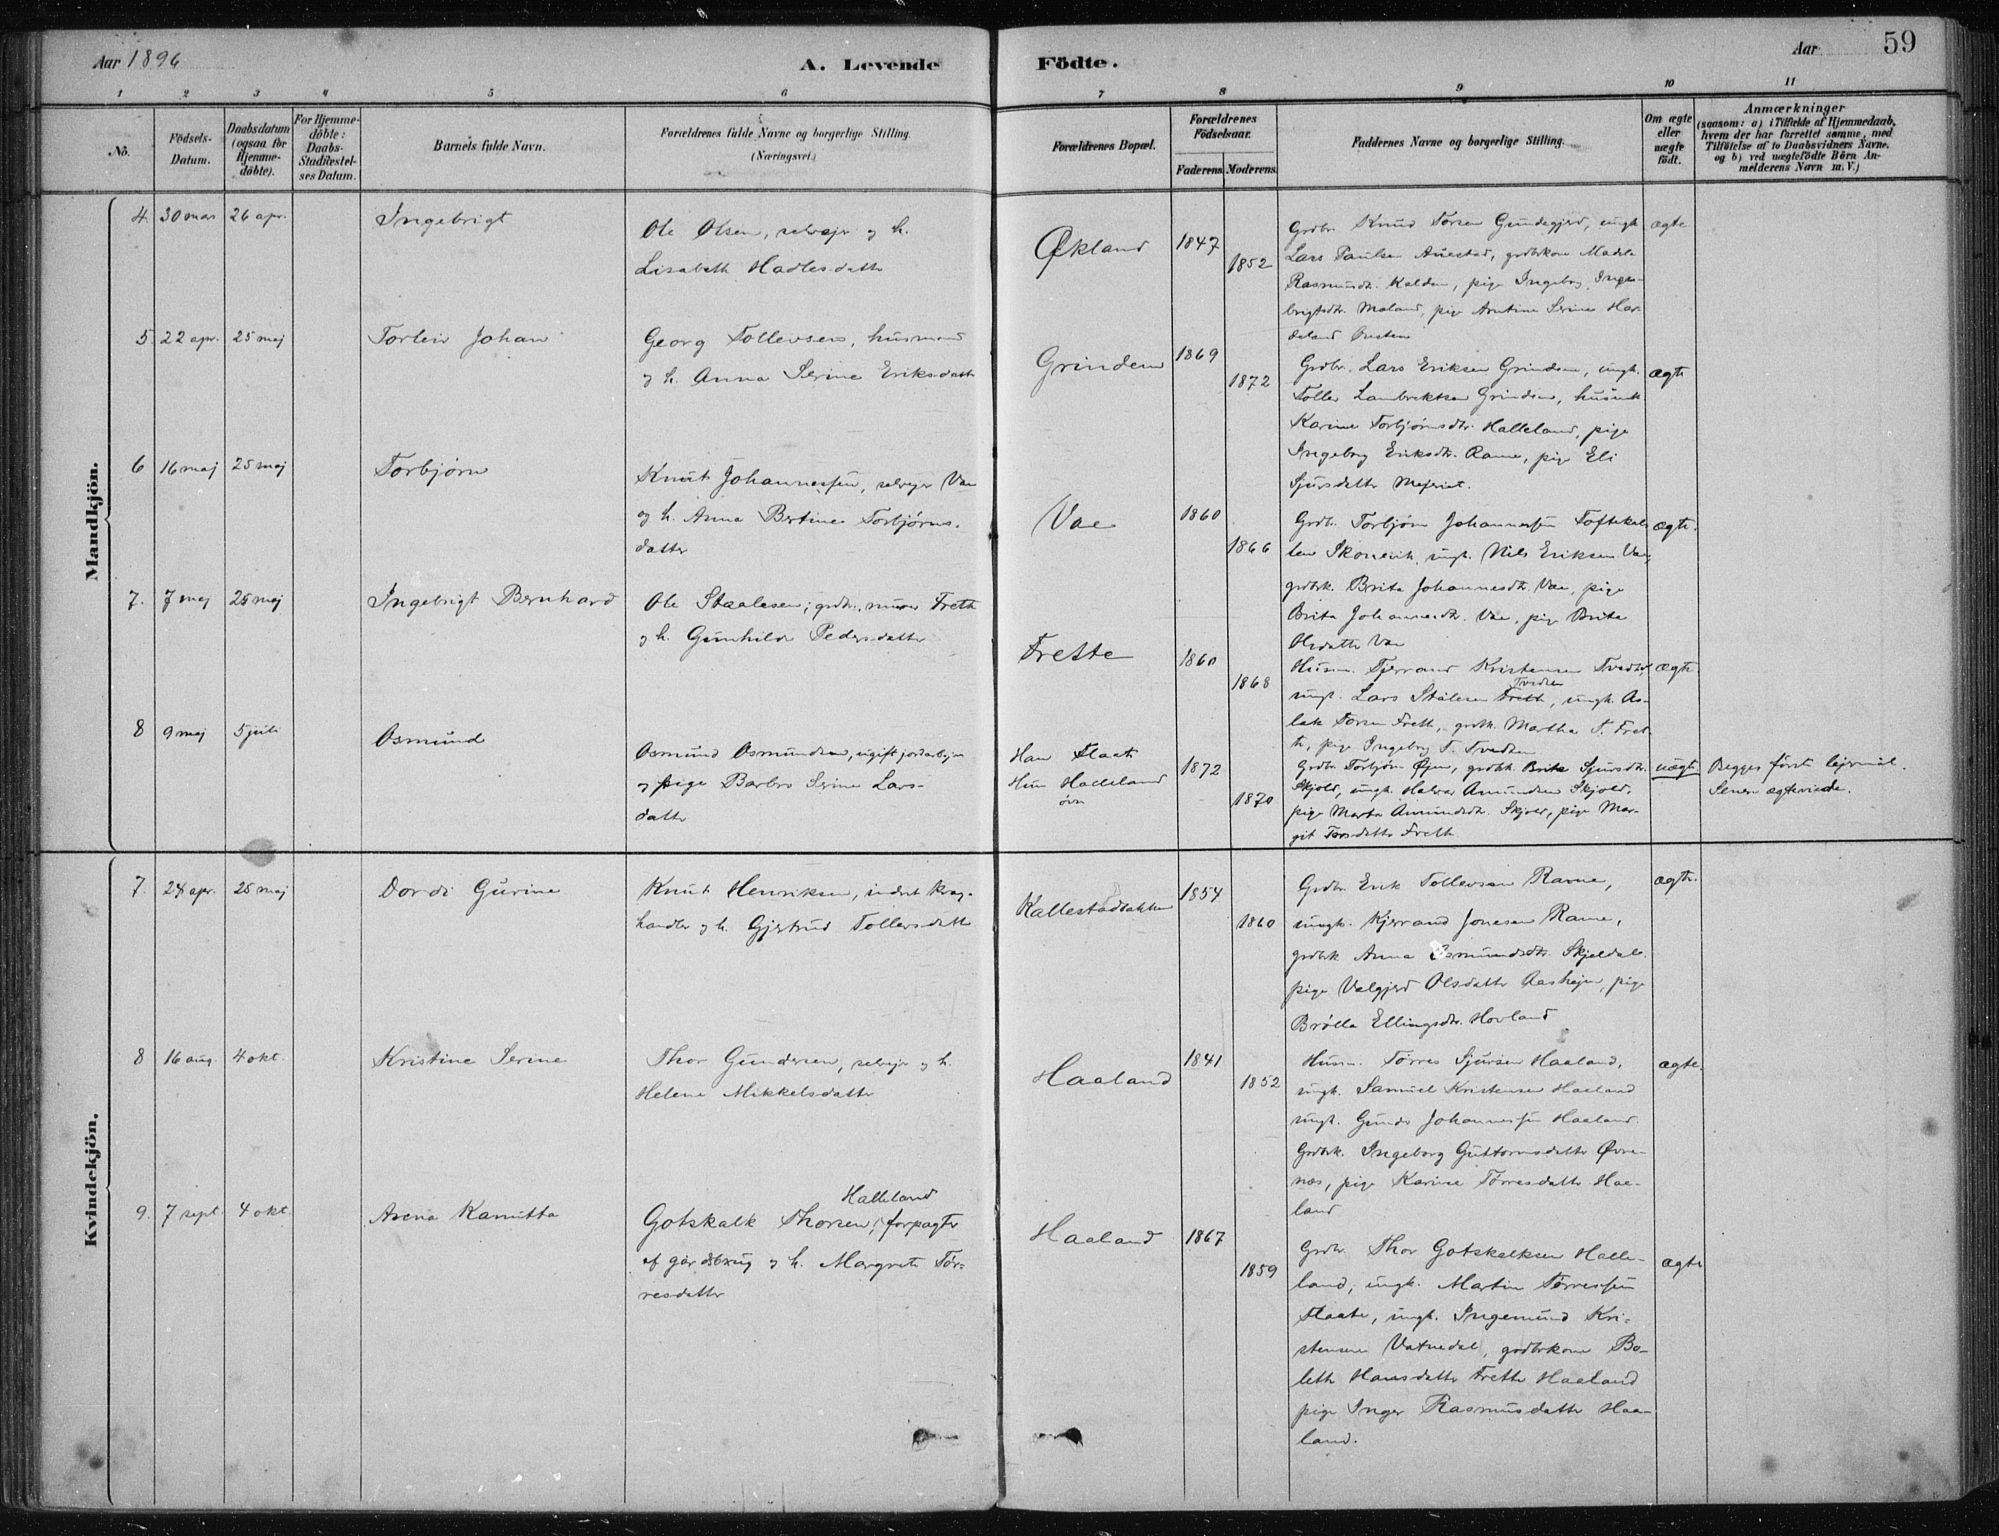 Aar 1896
A. Levende
Födte.
Aar
59
1 2 3 4 5 6 7 8 9 10 11
No.
Födsels-
Datum.
Daabsdatum
(ogsaa for
Hjemme-
döbte).
For Hjemme-
döbte:
Daabs-
Stadfæstel-
ses Datum.
Barnets fulde Navn.
Forældrenes fulde Navne og borgerlige Stilling.
(Næringsvei.)
Forældrenes Bopæl.
Forældrenes
Födselsaar.
Faderens. Moderens.
Faddernes Navne og borgerlige Stilling.
Om ægte
eller
uægte
födt.
Anmærkninger
(saasom: a) i Tilfælde af Hjemmedaab,
hvem der har forrettet samme, med
Tilföielse af to Daabsvidners Navne,
og b) ved uægtefödte Börn An-
melderens Navn m. V.)
Mandkjön.
4. 30 mars 26 apr. Ingebrigt
Ole Olsen, selvejr og h.
Lisabeth Hadlesdatter
Økland 1847
1852
Grdbr. Knud Torsen Gundegjerd, ungk.
Lars Paulsen Auestad, grdbrkone Madele
Rasmusdtr. Kalden, pige Ingeborg Inge-
brigtsdtr. Moland, pige Serine Har-
deland
ægte
5. 22 apr. 25 maj Torleiv Johan
Georg Tollevsen, husmand
og h. Anna Serine Eriksdatt
Grinden 1869
1872
Grdbr. Lars Eriksen Grinden, ungk.
Tollev Lambrektsen Grinden,
Karine Torbjørnsdtr. Halleland, pige
Ingeborg Eriksdtr. Rame, pige Eli
Sjursdatter
ægte
6 16 maj 25 maj Torbjørn
Knut Johannessen, selvejer Vae
og h. Anna Bertine Torbjørns-
datter
Vae 1860
1866
Grdb. Torbjørn Johannessen
Skonevik, ungk. Nils Eriksen Vae,
grdbrk. Brita Johannesdtr. Vae, pige
Brita Johannesdtr. Vae, pige Brita
Olsdatter Vae
ægte
7. 7 maj 25 maj Ingebrigt Bernhard
Ole Staalesen, grdbr., murer Frette
og h. Gunhilde Pedersdatter
Frette 1860
1868
Husm. Tjerrand Kristensen Tvedten,
ungk. Lars Stålesen Frette, ungk. As-
Tvedten
lak Torsen Frette, grdbk. Martha T. Fret-
te, pige Ingeborg T. Tvedten
ægte
8 9 maj 5 juli Osmund
Osmund Osmundsen, ugift jordarbejder
og pige Barbro Serine Lars-
datter
Han Flaate
Hun Halleland
øvre
1872
1870
Grdbr. Torbjørn Øjen, grdbk. Brita Sjursdtr.
Skjold, ungk. Halvor Amundsen Skjold,
pige Marta Amundsdtr. Skjold, pige Mar-
git Torsdatter Frette.
uægte
Begges første lejermål.
Senere ægteviede.
Kvindekjön.
7. 24 apr. 25 maj Dordi Gurine
Knut Henriksen, inderst kreg-
handler og h. Gjertrud Tollevsdatt
Kallestadbakken 1854
1860
Grdbr. Erik Tollevsen Ravne,
ungk. Kjerrand Jonesen Ravne,
grdbrk Anna Osmundsdtr. Skjeldal,
pige Valgjerd Olsdatter Aashejen, pige
Brölla Ellingsdtr. Hovland
ægte
8 16 aug. 4 okt. Kristine Serine
Thor Gundersen, selvejr og h.
Helene Mikkelsdatter
Haaland 1841
1852
Husm. Tørres Sjursen Haaland,
ungk. Samuel Kristensen Haaland
ungk. Gunder Johannessen Haaland.
Grdbrk. Ingeborg Guttormsdatter Øvre-
næs, pige Karine Tørresdatter Haa-
land
ægte
9. 7 sept. 4 okt. Asena Kamitta
Halleland
Gotskalk Thorsen, forpagter
af gårdsbrug og h. Margrete Tør-
resdatter
Haaland 1867
1859
Grdbr. Thor Gotskalksen Halle-
land, ungk. Martin Tørressen
Flaate, ungk. Ingemund Kri-
stensen Vatnedal, grdbrkone Bo-
lette Hansdatter Frette Haaland
pige Inger Rasmusdatter Haa-
land.
ægte